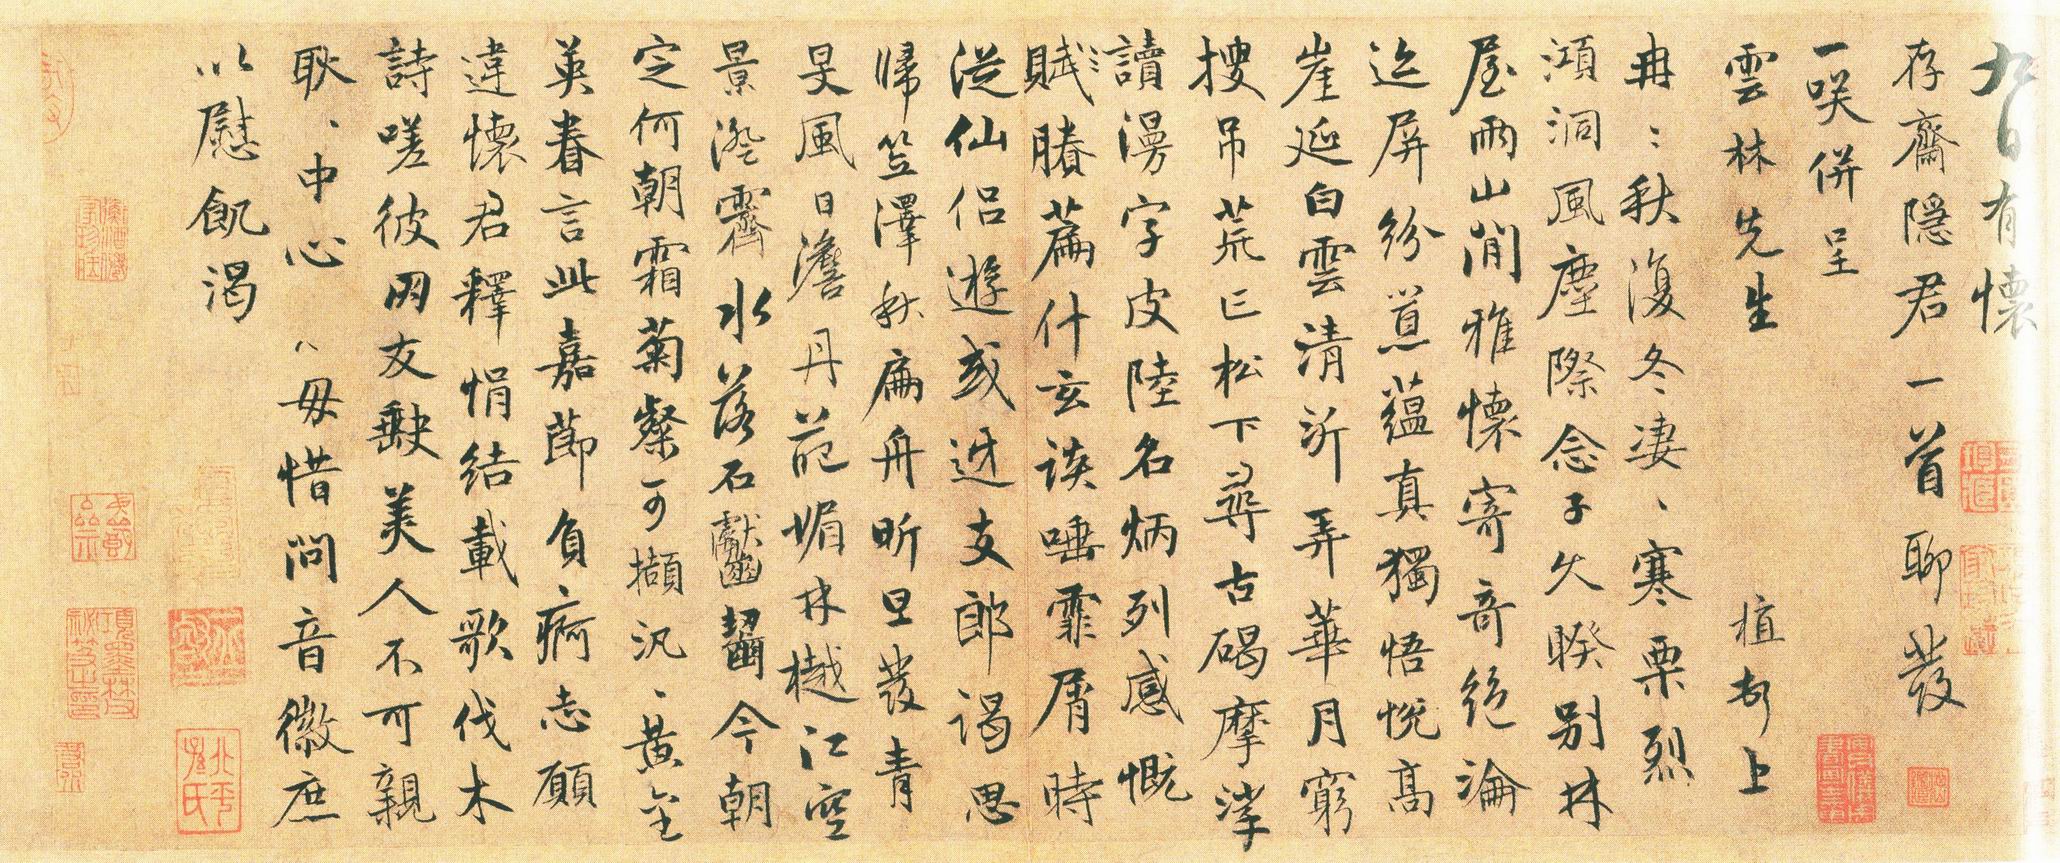 九日有懷
存齋隱君一首聊發
一咲併呈
雲林先生
植頓上
冉〻秋復冬凄〻寒栗烈
澒洞風塵際念子久睽別林
屋兩山間雅懷寄奇絕淪
迄屏紛蒠蘊真獨悟悅高
崖延白雲清沂弄華月窮
搜吊荒亡松下尋古碣摩挲
讀漫字皮陸名炳列感慨
賦勝篇什玄談唾霏屑時
從仙侶遊或迓支郎謁思
歸笠澤秋扁舟昕旦發青
旻風日澹丹葩媚林樾江空
景澄霽水落石獻齧今朝
定何朝霜菊粲可擷汎〻黃金
英眷言此嘉節負痾志願
違懷君釋悁結載歌伐木
詩嗟彼罔友歎美人不可親
耿〻中心〻毋惜問音徽庶
以慰飢渴
北平孫氏